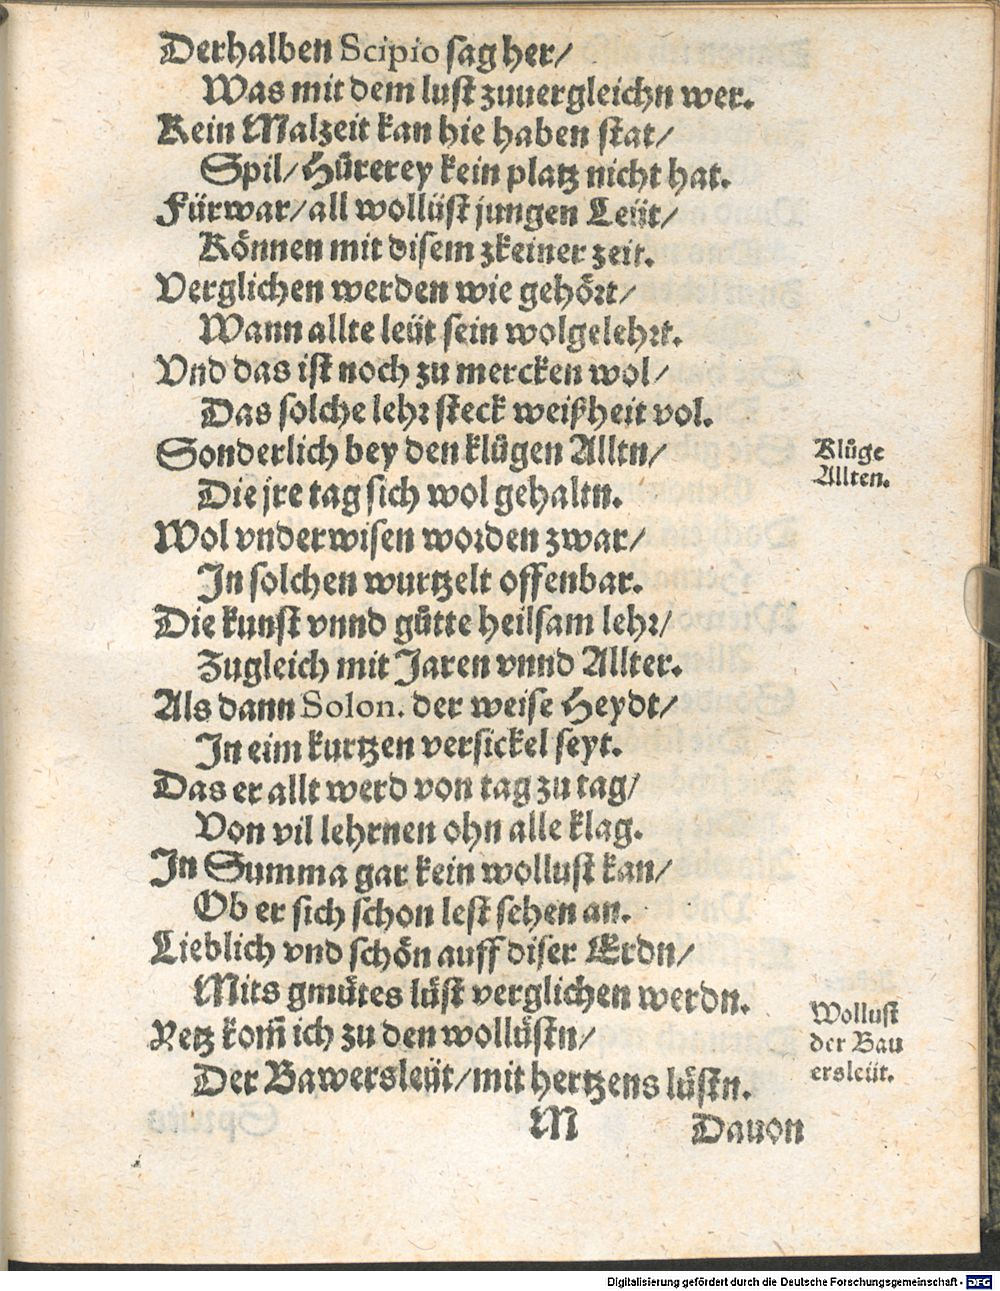 Derhalben Scipio sag her/
Was mit dem lust zuuergleichn wer.
Kein Malzeit kan hie haben stat/
Spil/ Hůrerey kein platz nicht hat.
Fürwar/ all wollüst jungen Leüt/
Können mit disem zkeiner zeit.
Verglichen werden wie gehört/
Wann allte leüt sein wolgelehrt.
Vnd das ist noch zu mercken wol/
Das solche lehr steck weißheit vol.
Sonderlich bey den klůgen Alltn/
Klůge
Allten.
Die jre tag sich wol gehaltn.
Wol vnderwisen worden zwar/
In solchen wurtzelt offenbar.
Die kunst vnnd gůtte heilsam lehr/
Zugleich mit Jaren vnnd Allter.
Als dann Solon. der weise Heydt/
In eim kurtzen versickel seyt.
Das er allt werd von tag zu tag/
Von vil lehrnen ohn alle klag.
In Summa gar kein wollust kan/
Ob er sich schon lest sehen an.
Lieblich vnd schön auff diser Erdn/
Mits gmůtes lüst verglichen werdn.
Yetz kom̃ ich zu den wollüstn/
Der Bawersleüt/ mit hertzens lüstn.
Wollust
der Bau
ersleüt.
M
Dauon
Digitalisierung gefördert durch die Deutsche Forschungsgemeinschaft - DFG